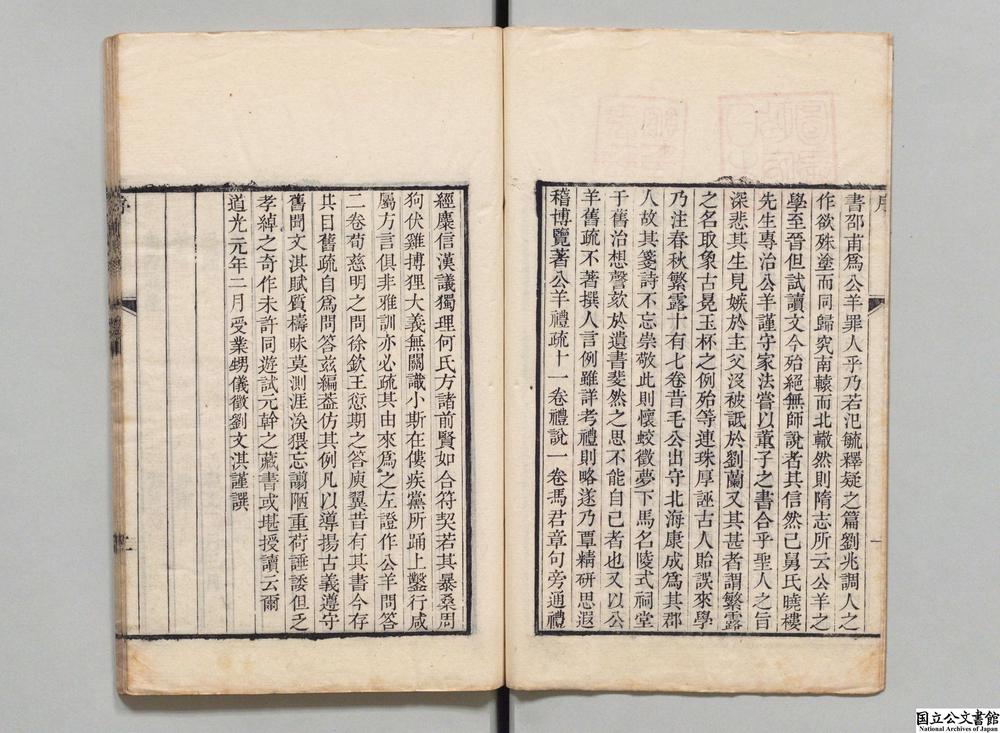 序
書邵甫爲公羊罪人乎乃若氾毓釋疑之篇劉兆調人之
作欲殊塗而同歸究南轅而北轍然則隋志所云公羊之
學至晉但試讀文今殆絕無師說者其信然已舅氏曉樓
先生專治公羊謹守家法嘗以董子之書合乎聖人之旨
深悲其生見嫉於主父沒被詆於劉蘭又其甚者謂繁露
之名取象古冕玉杯之例殆等連珠厚誣古人貽誤來學
乃注春秋繁露十有七卷昔毛公出守北海康成爲其郡
人故其箋詩不忘崇敬此則懷蛟徵夢下馬名陵式祠堂
于舊治想謦欬於遺書斐然之思不能自已者也又以公
羊舊疏不著撰人言例雖詳考禮則略遂乃覃精研思遐
稽博覽著公羊禮疏十一卷禮說一卷馬君章句旁通禮
經麋信漢議獨理何氏方諸前賢如合符契若其暴桑周
狗伏雞搏狸大義無關識小斯在僂疾黨所踊上鑿行咸
屬方言俱非雅訓亦必疏其由來爲之左證作公羊問答
二卷荀慈明之問徐欽王愆期之答庾翼昔有其書今存
其曰舊疏自爲問答茲編葢仿其例凡以導揚古義遵守
舊聞文淇賦質檮昧莫測涯涘猥忘譾陋重荷諈諉但乏
孝綽之奇作未許同遊試元幹之藏書或堪授讀云爾
道光元年二月受業甥儀徵劉文淇謹譔
国立公文書館
National Archives of Japan